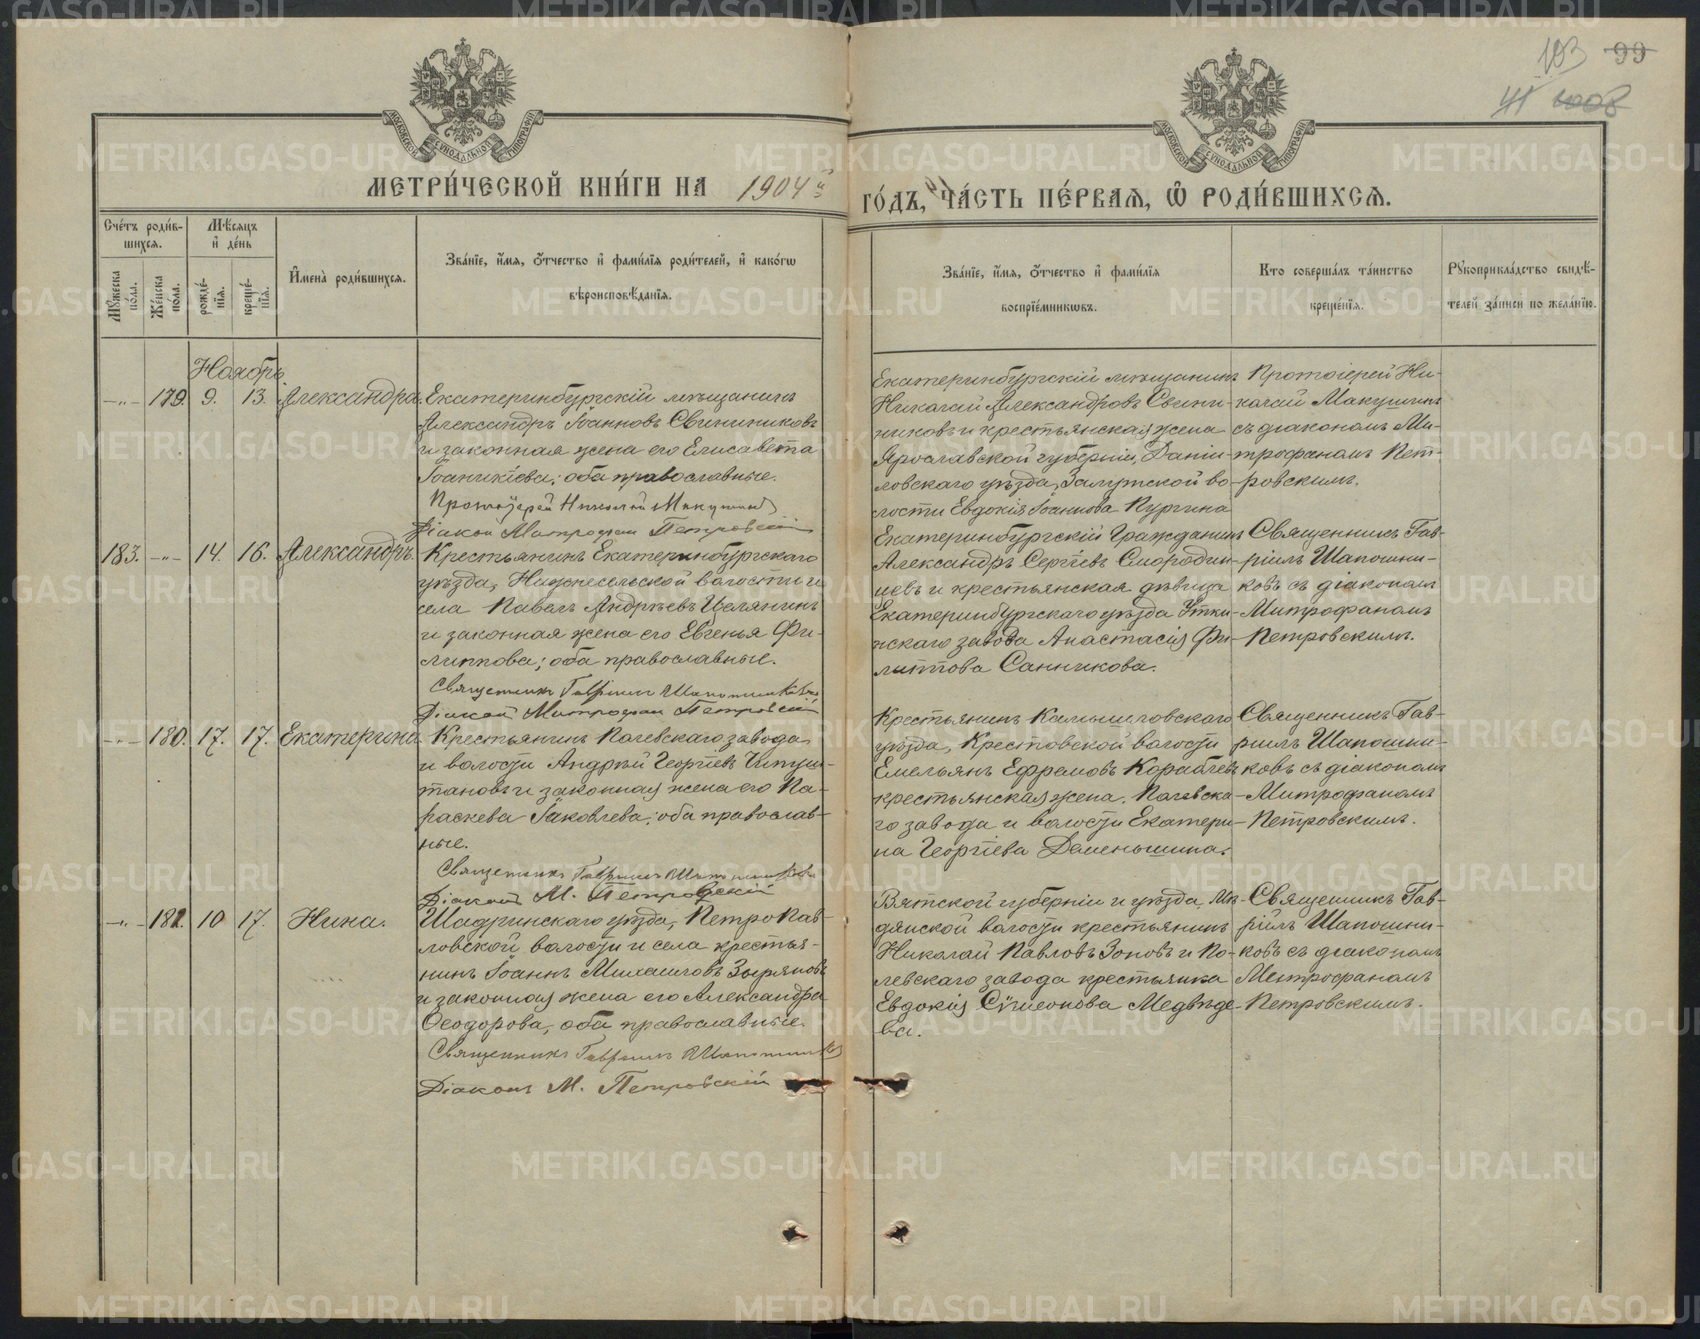 103 99
41 1008
МОСКОВСКОЙ СѴНОДАЛЬНОЙ ТИПОГРАФІИ
МОСКОВСКОЙ СѴНОДАЛЬНОЙ ТИПОГРАФІИ
МЕТРИ́ЧЕСКОЙ КНИ́ГИ НА 1904 й
ГО́ДЪ, ЧА́СТЬ ПЕ́РВАЯ, Ѿ РОДИ́ВШИХСЯ.
Сче́тъ роди́в-
шихся.
Мѣ́сяцъ
и҆ де́нь
Мꙋ́жеска по́ла.
Же́нска по́ла.
рожде́-нїя.
креще́-нїя.
И҆мена̀ роди́вшихся.
Зва́нїе, и҆́мя, ѻ҆́тчество и҆ фами́лїя роди́телей, и҆ како́гѡ
вѣроисповѣ́данїя.
Зва́нїе, и҆́мя, ѻ҆́тчество и҆ фами́лїя
воспрїе́мникѡвъ.
Кто соверша́лъ та́инство
креще́нїя.
Рꙋкоприкла́дство свидѣ́-
телей за́писи по жела́нїю.
Ноябрь.
-„- 179. 9. 13. Александра.
Екатеринбургскій мѣщанинъ
Александръ Іоанновъ Свининиковъ
и законная жена его Елисавета
Іоанникіева; оба православные.
Протоіерей Николай Макушинъ
Діакон Митрофан Петровскій
Екатеринбургскій мѣщанинъ
Николай Александровъ Свини-
никовъ и крестьянская жена
Ярославской губерніи, Дани-
ловскаго уѣзда, Залужской во-
лости Евдокія Іоаннова Кургина
Протоіерей Ни-
колай Макушинъ
съ діакономъ Ми-
трофаномъ Пет-
ровскимъ.
183. -„- 14. 16. Александръ.
Крестьянинъ Екатеринбургскаго
уѣзда, Нижнесельской волости и
села Павелъ Андреевъ Целянинъ
и законная жена его Евгенья Фи-
липпова; оба православные.
Священникъ Гавріилъ Шапошниковъ
Діакон Митрофан Петровскій
Екатеринбургскій Гражданинъ
Александръ Сергіевъ Смородин-
цевъ и крестьянская дѣвица
Екатеринбургскаго уѣзда Утки-
нскаго завода Анастасія Фи-
липпова Санникова.
Священникъ Гав-
ріилъ Шапошни-
ковъ съ діакономъ
Митрофаномъ
Петровскимъ.
-„- 180. 17. 17. Екатерина
Крестьянинъ Полевскаго завода
и волости Андрей Георгіевъ
и законная жена его Па-
раскева Іаковлева; оба православ-
ные.
Священникъ Гавріилъ Шапошниковъ
Діаконъ М. Петровскій
Крестьянинъ Камышловскаго
уѣзда, Крестовской волости
Емельянъ Ефремовъ Кораблевъ
крестьянская жена, Полевска-
го завода и волости Екатери-
на Георгіева Деменьшина.
Священникъ Гав-
ріилъ Шапошни-
ковъ съ діакономъ
Митрофаномъ
Петровскимъ.
-„- 181. 10 17. Нина.
Шадринскаго уѣзда, Петропав-
ловской волости и села крестья-
нинъ Іоаннъ Михаиловъ Зыряновъ
и законная жена его Александра
Ѳеодорова, оба православные.
Священникъ Гавріилъ Шапошников
Діаконъ М. Петровскій
Вятской губерніи и уѣзда, Мѣ-
дянской волости крестьянинъ
Николай Павловъ Зоновъ и По-
левскаго завода крестьянка
Евдокія Сѵмеонова Медвѣде-
ва.
Священникъ Гав-
ріилъ Шапошни-
ковъ съ діакономъ
Митрофаномъ
Петровскимъ.
METRIKI.GASO-URAL.RU